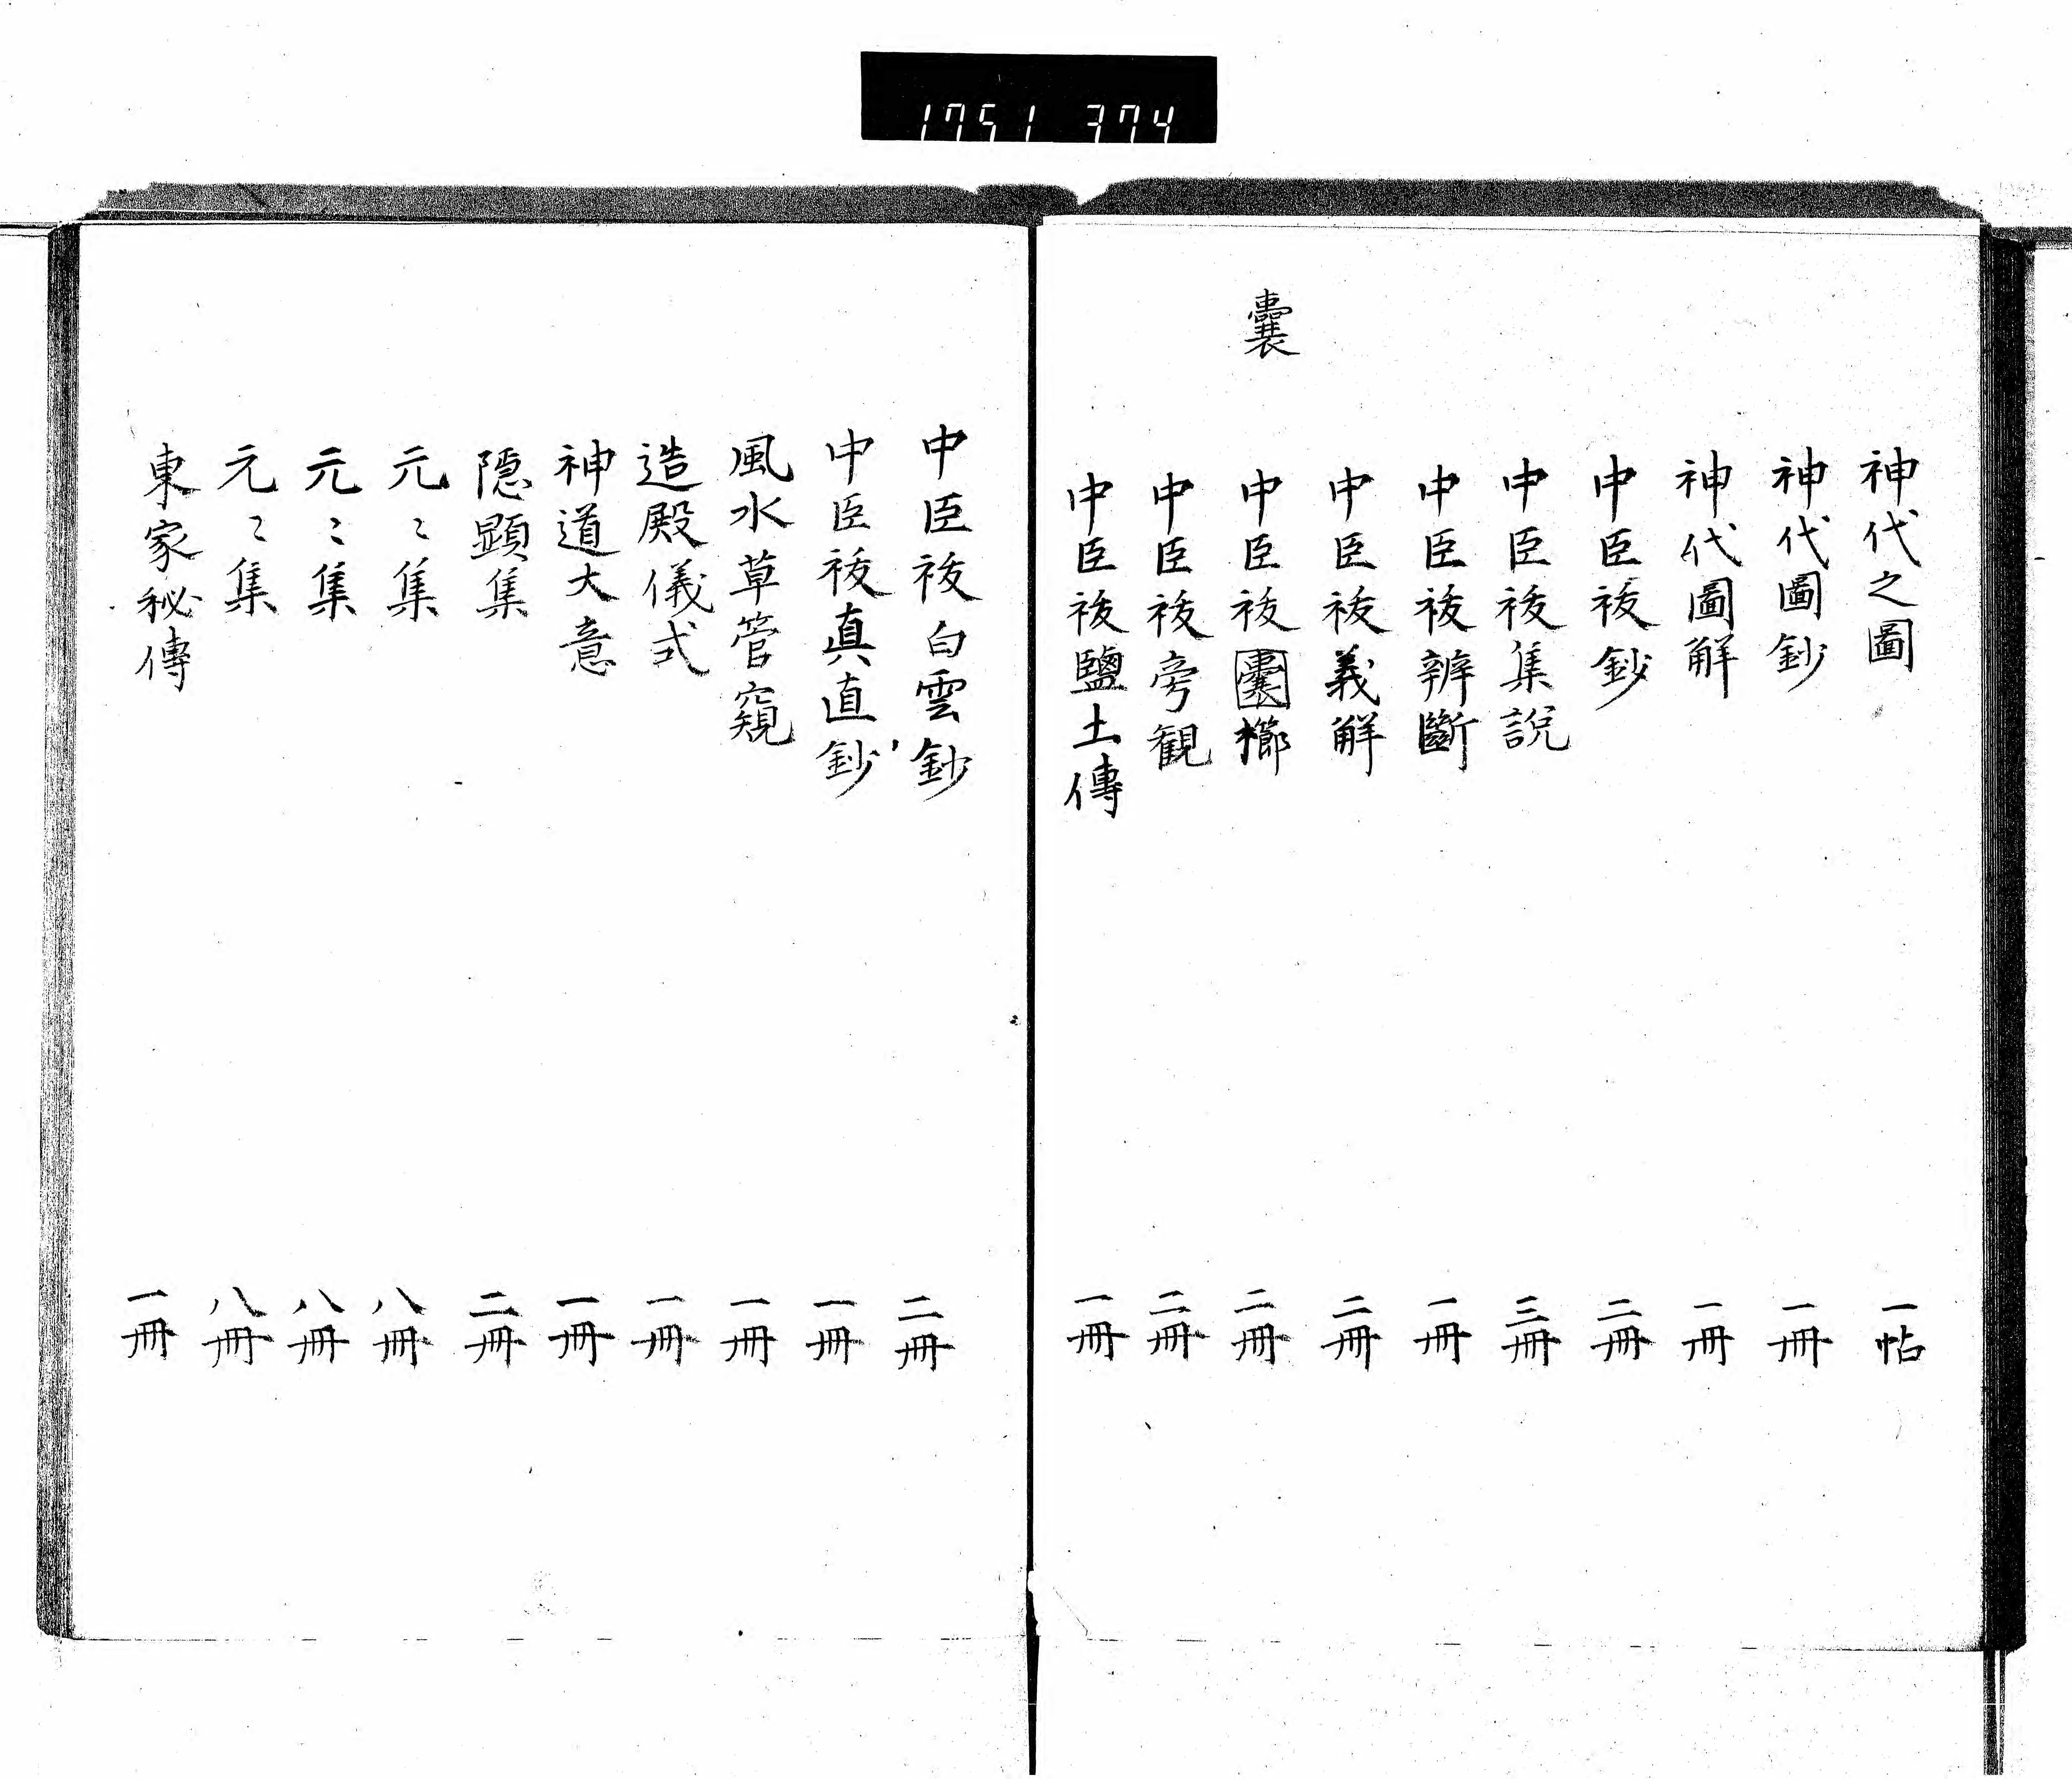 1751 374
神代之圖 一帖
神代圖鈔 一冊
神代圖解 一冊
中臣祓鈔 二冊
中臣祓集説 三冊
中臣祓辨斷 一冊
中臣祓義解 二冊
囊
中臣祓囊櫛 二冊
中臣祓旁観 二冊
中臣祓鹽土傳 一冊
中臣祓白雲鈔 二冊
中臣祓真直鈔 一冊
風水草管窺 一冊
造殿儀式 一冊
神道大意 一冊
隠顕集 二冊
元〻集 八冊
元〻集 八冊
元〻集 八冊
東家秘傳 一冊